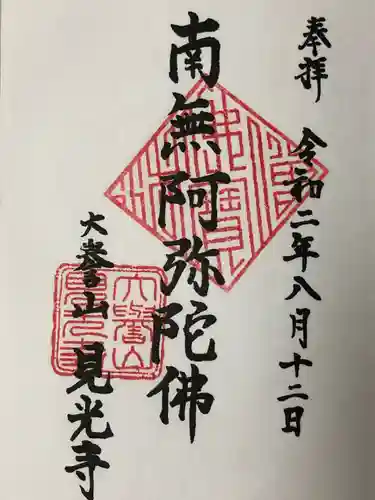 奉拝
令和二年八月十二日
南無阿弥陀佛
大誉山
見光寺